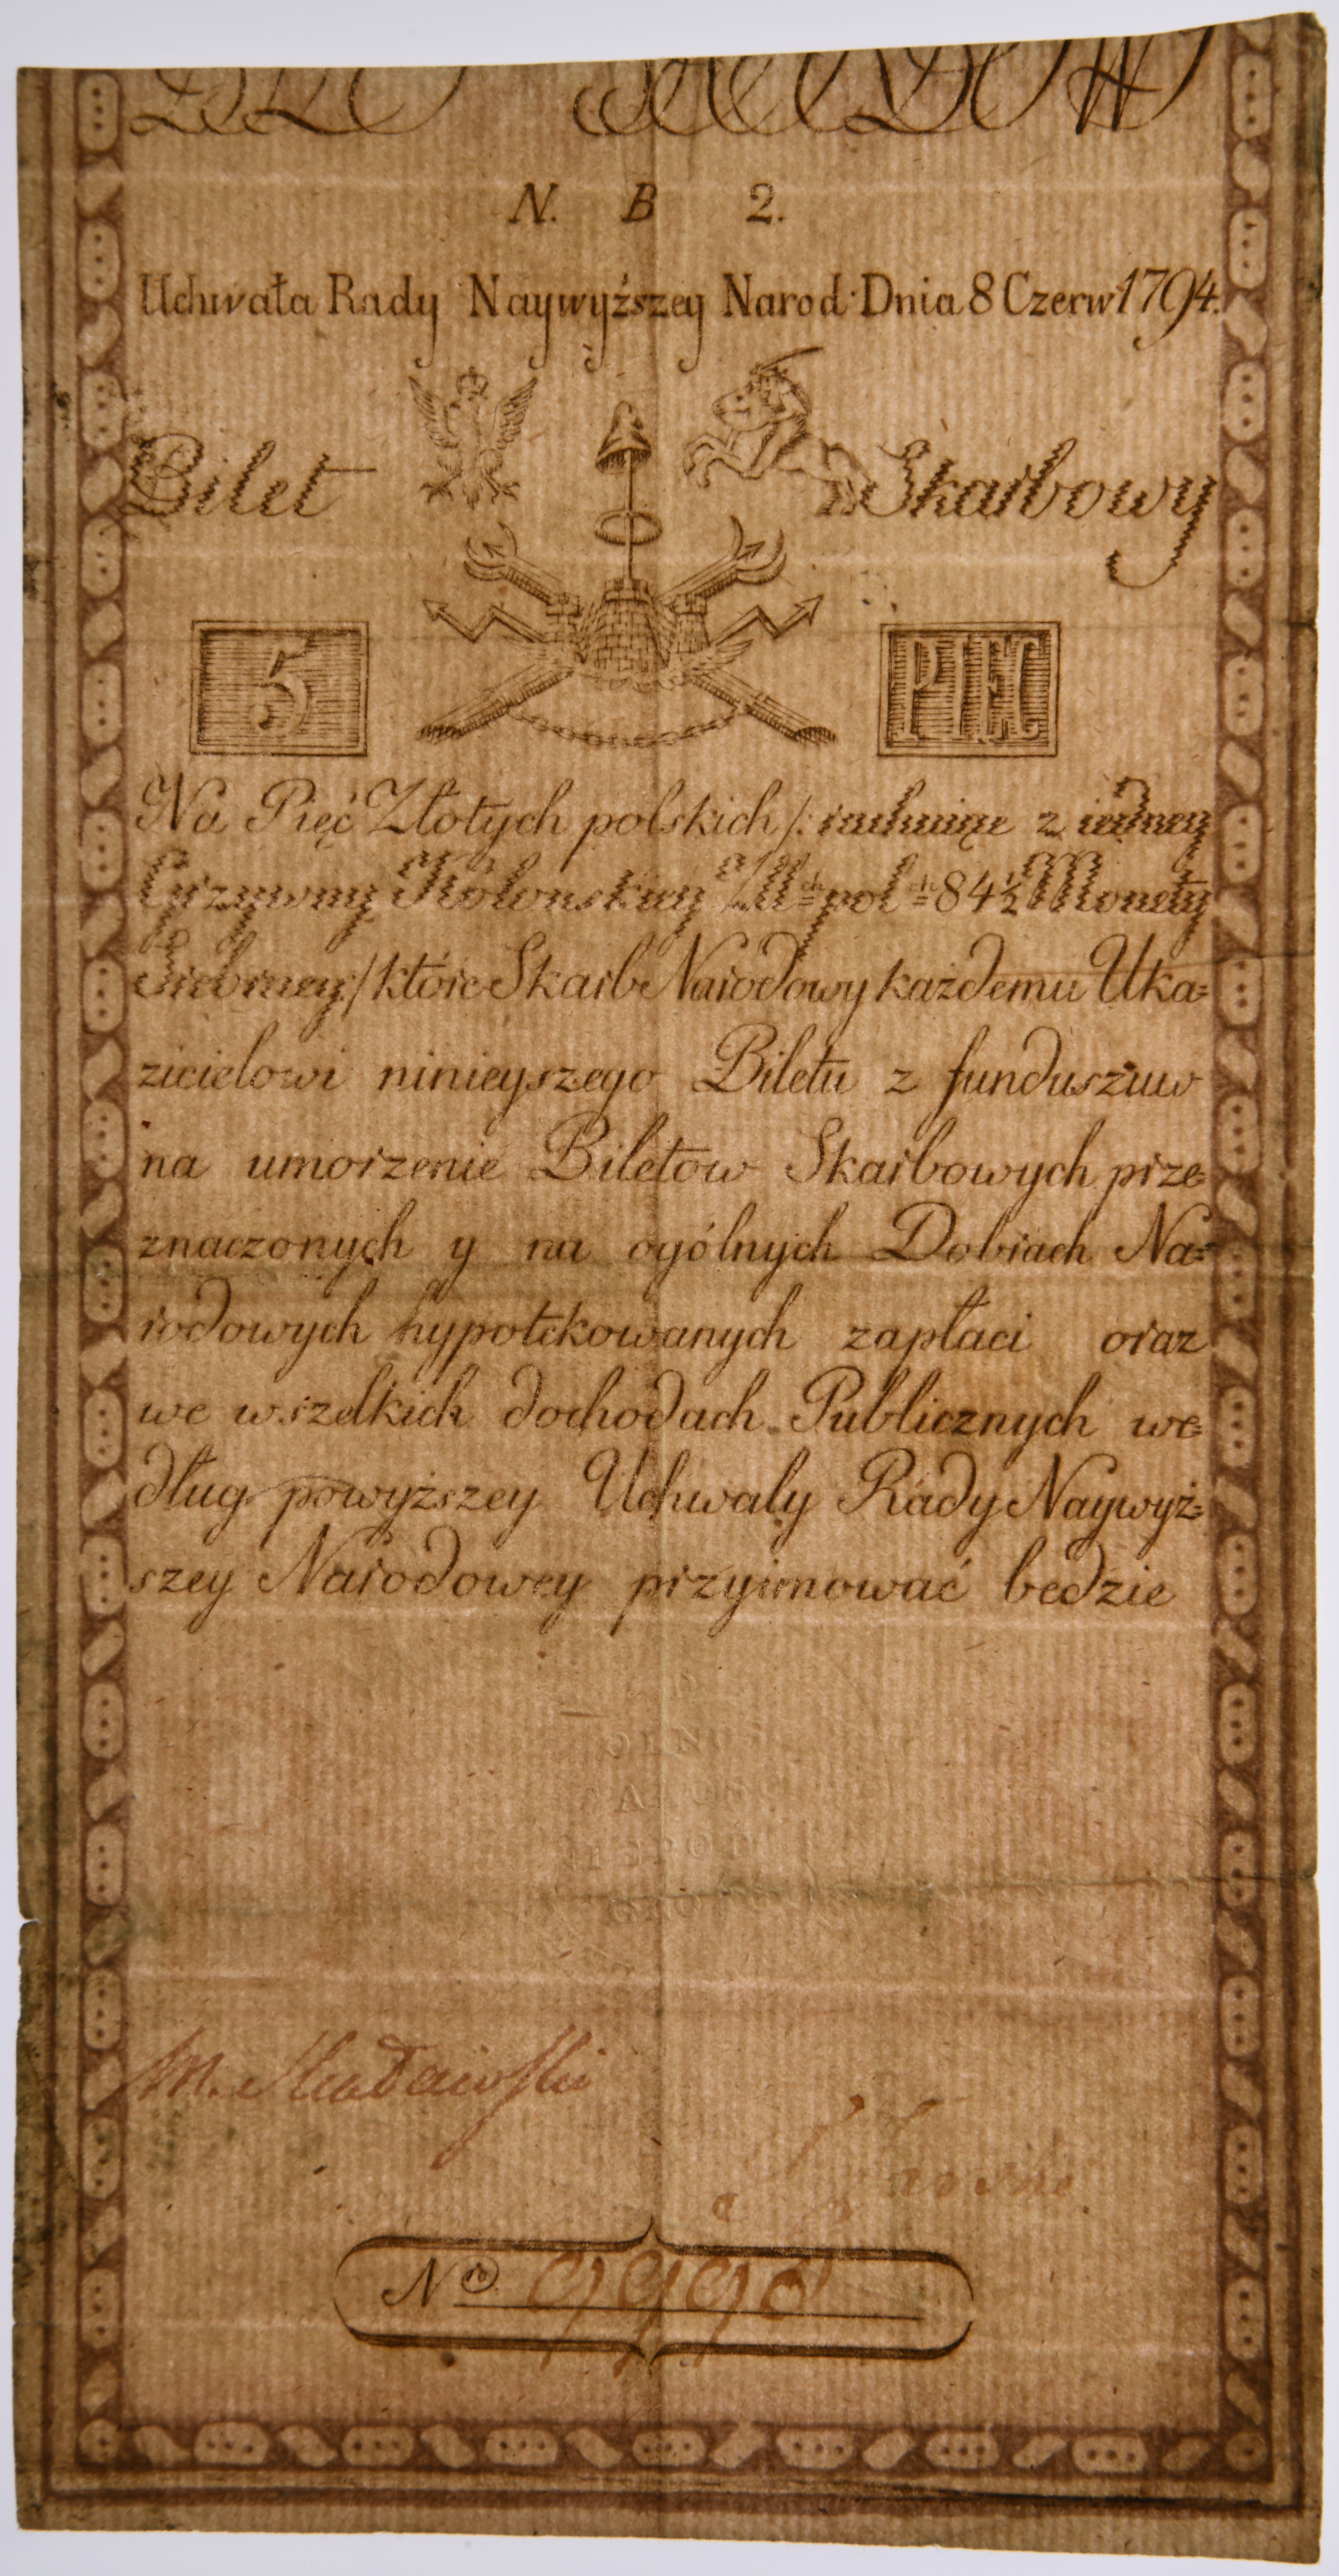 N. B 2.
Uchwała Rady Naywyższey Narod: Dnia 8 Czerw 1794.
Bilet Skarbowy
5 PIĘĆ
Na Pięć Złotych polskich /: rachuiąc z iedney
Grzywny Kolonskiey Złł ch pol ch 84 1/2 Monety
Srebrney:/ które Skarb Narodowy każdemu Uka=
zicielowi ninieyszego Biletu z funduszuw
na umorzenie Biletow Skarbowych prze=
znaczonych y na ogólnych Dobrach Na=
rodowych hypotekowanych zapłaci oraz
we wszelkich dochodach Publicznych we=
dług powyższey Uchwały Rady Naywyż=
szey Narodowey przyimować będzie
WOLNOSC
No 9990